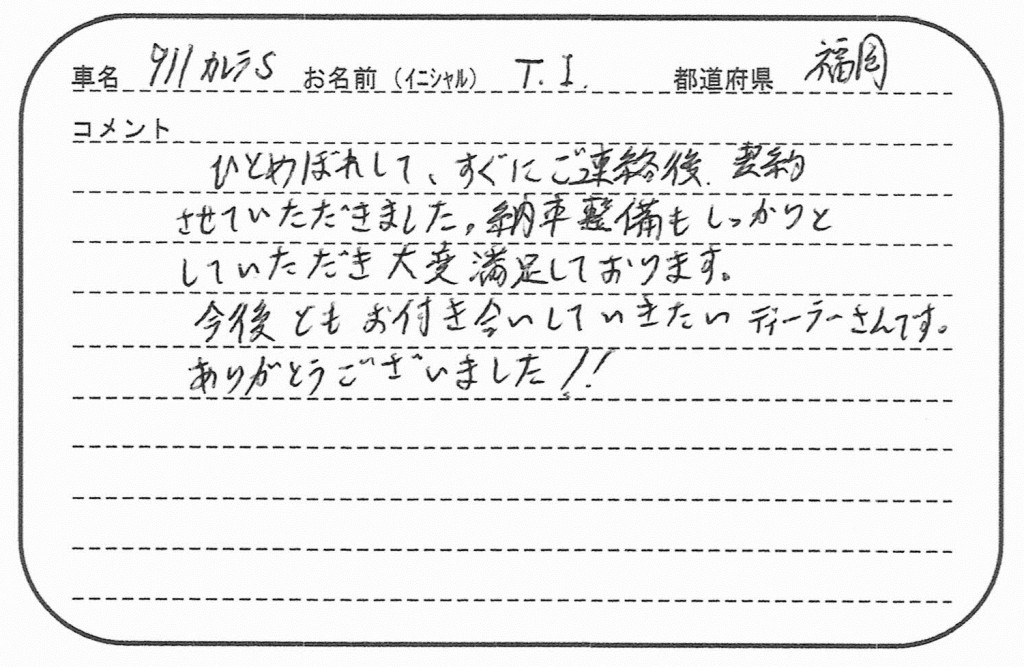 車名 911カレラS お名前（イニシャル） T.I. 都道府県 福岡
コメント
ひとめぼれして、すぐにご連絡後、契約
させていただきました。納車整備もしっかりと
していただき大変満足しております。
今後ともお付き合いしていきたいディーラーさんです。
ありがとうございました!!